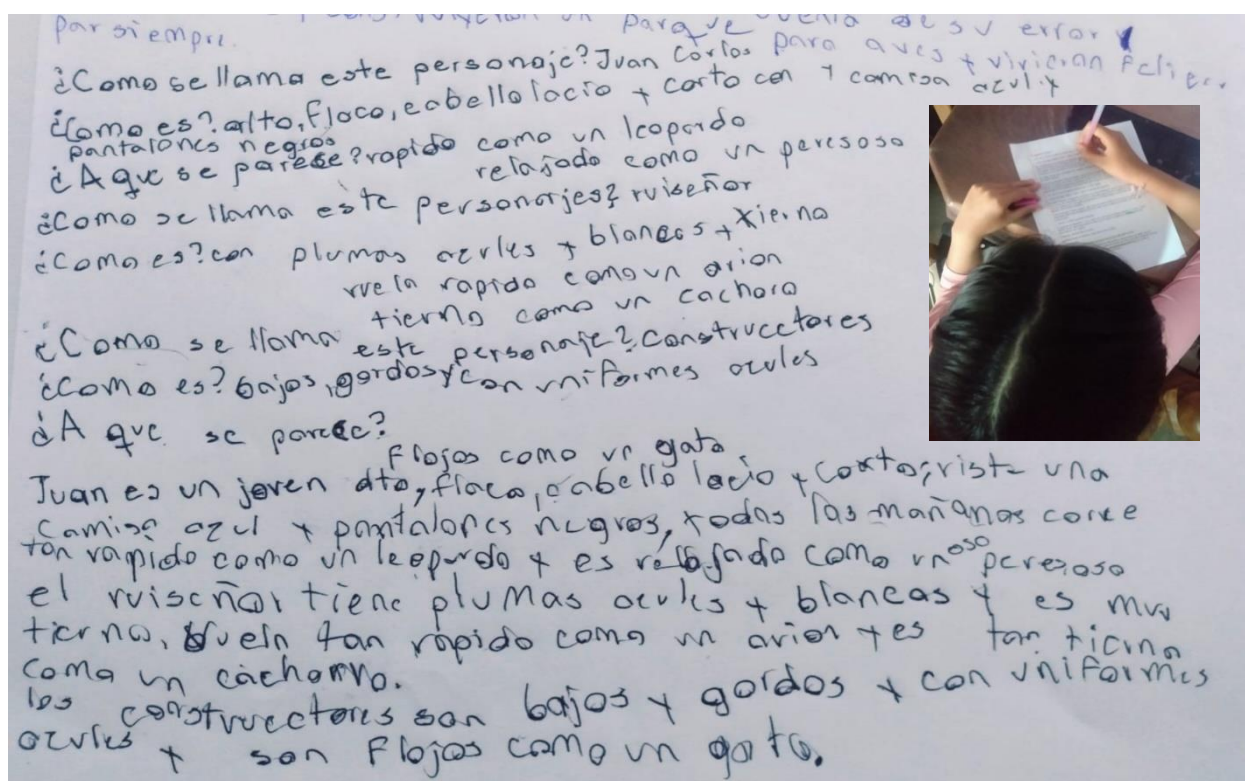 par siempre.
parque de su error y
¿Como se llama este personaje? Juan Carlos para aves y vivieron felices
¿Como es? alto, flaco, cabello lacio y corto con y camisa azul y
pantalones negros
¿A que se parese? rapido como un leopardo
relajado como un peresoso
¿Como se llama este personarjes? ruiseñor
¿Como es? con plumas azules y blancas y tierno
vuela rapido como un avion
tierno como un cachoro
¿Como se llama este personaje? constructores
¿Como es? bajos, gordos y con uniformes azules
¿A que se parece?
Flojos como un gato
Juan es un joven alto, flaco, cabello lacio y corto, viste una
camisa azul y pantalones negros, todas las mañanas corre
tan rapido como un leopardo y es relajado como un oso perezoso
el ruiseñor tiene plumas azules y blancas y es muy
tierno, vuela tan rapido como un avion y es tan tierno
como un cachorro.
los constructores son bajos y gordos y con uniformes
azules y son Flojos como un gato.